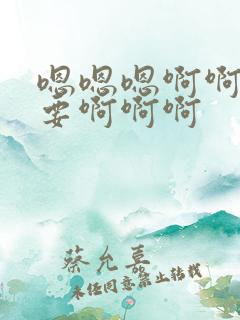 嗯嗯嗯啊啊
要啊啊啊
蔡允嘉
未经同意禁止转载